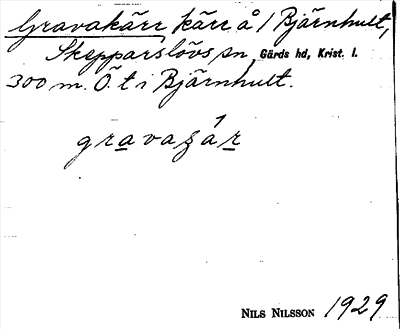 Gravakärr kärr å 1 Bjärnhult,
Skepparslövs sn, Gärds hd, Krist. l.
300 m. Ö. t i Bjärnhult.
gravaʒár
NILS NILSSON 1929